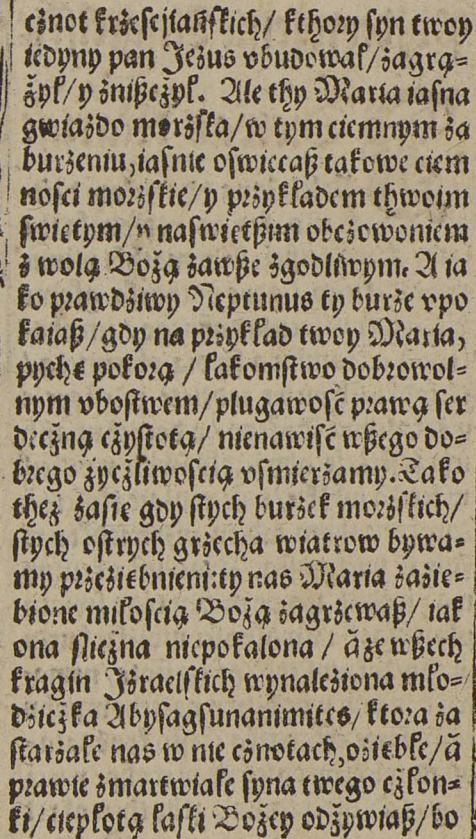 cznot krześcijańskich/ kthory syn twoy
iedyny pan Jezus vbudował/zagrą-
żył/y zniszczył. Ale thy Maria iasna
gwiazdo morzska/w tym ciemnym za
burzeniu, iasnie oswiecasz takowe ciem
nosci morzskie/y przykładem thwoim
swietym/y naswietszim obczowoniem
z wolą Bożą zawsze zgodliwym. A ia
ko prawdziwy Neptunus ty burze vpo
kaiasz/gdy na przykład twoy Maria,
pychę pokorą / łakomstwo dobrowol-
nym vbostwem/plugawość prawą ser
deczną czystotą/ nienawiść wszego do-
brego życzliwoscią vsmierzamy. Tako
theż zasie gdy stych burzek morzskich/
stych ostrych grzecha wiatrow bywa-
my przeziębnieni: ty nas Maria zazie-
bione miłoscią Bożą zagrzewasz/ iak
ona sliczna niepokalona / ā ze wszech
kragin Jzraelskich wynaleziona mło-
dzieżka Abysagsunanimites/ ktora za
starzałe nas w nie cznotach, oziębłe/ā
prawie zmartwiałe syna twego człon-
ki/ciepłotą łaski Bożey odżywiasz/bo